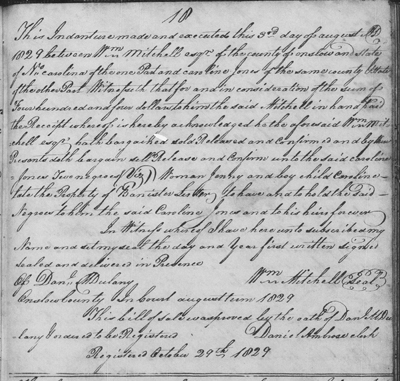 18
This Indenture made and executed this 3rd day of august AD
1829 between Wm Mitchell esqr. of the county of onslow and State
of No carolina of the one Part and caroline Jones of the same county & State
of the other Part Witnesseth that for and in consideration of the sum of
Four hundred and four dollars to him the said Mitchell in hand paid
the Receipt whereof is hereby acknowledged he the aforesaid Wm Mit
chell esqr. hath bargained sold Released and confirmed and by these
Presents doth bargain sell Release and Confirm unto the said caroline
Jones Two negroes (Viz) Woman Jenny and boy child Caroline
late the Property of Banister Lester To have and to hold the said
Negroes to him the said Caroline Jones and to his heirs forever
In Witness whereof I have here unto subscribed my
Name and set my seal the day and Year first written signed
sealed and delivered in Presence
Of Danl. McDulany Wm Mitchell (Seal)
Onslow County In Court august term 1829
This bill of sale was proved by the oath of Danl. McDu
lany Ordered to be Registered Daniel Ambrose clerk
Registered October 29th, 1829